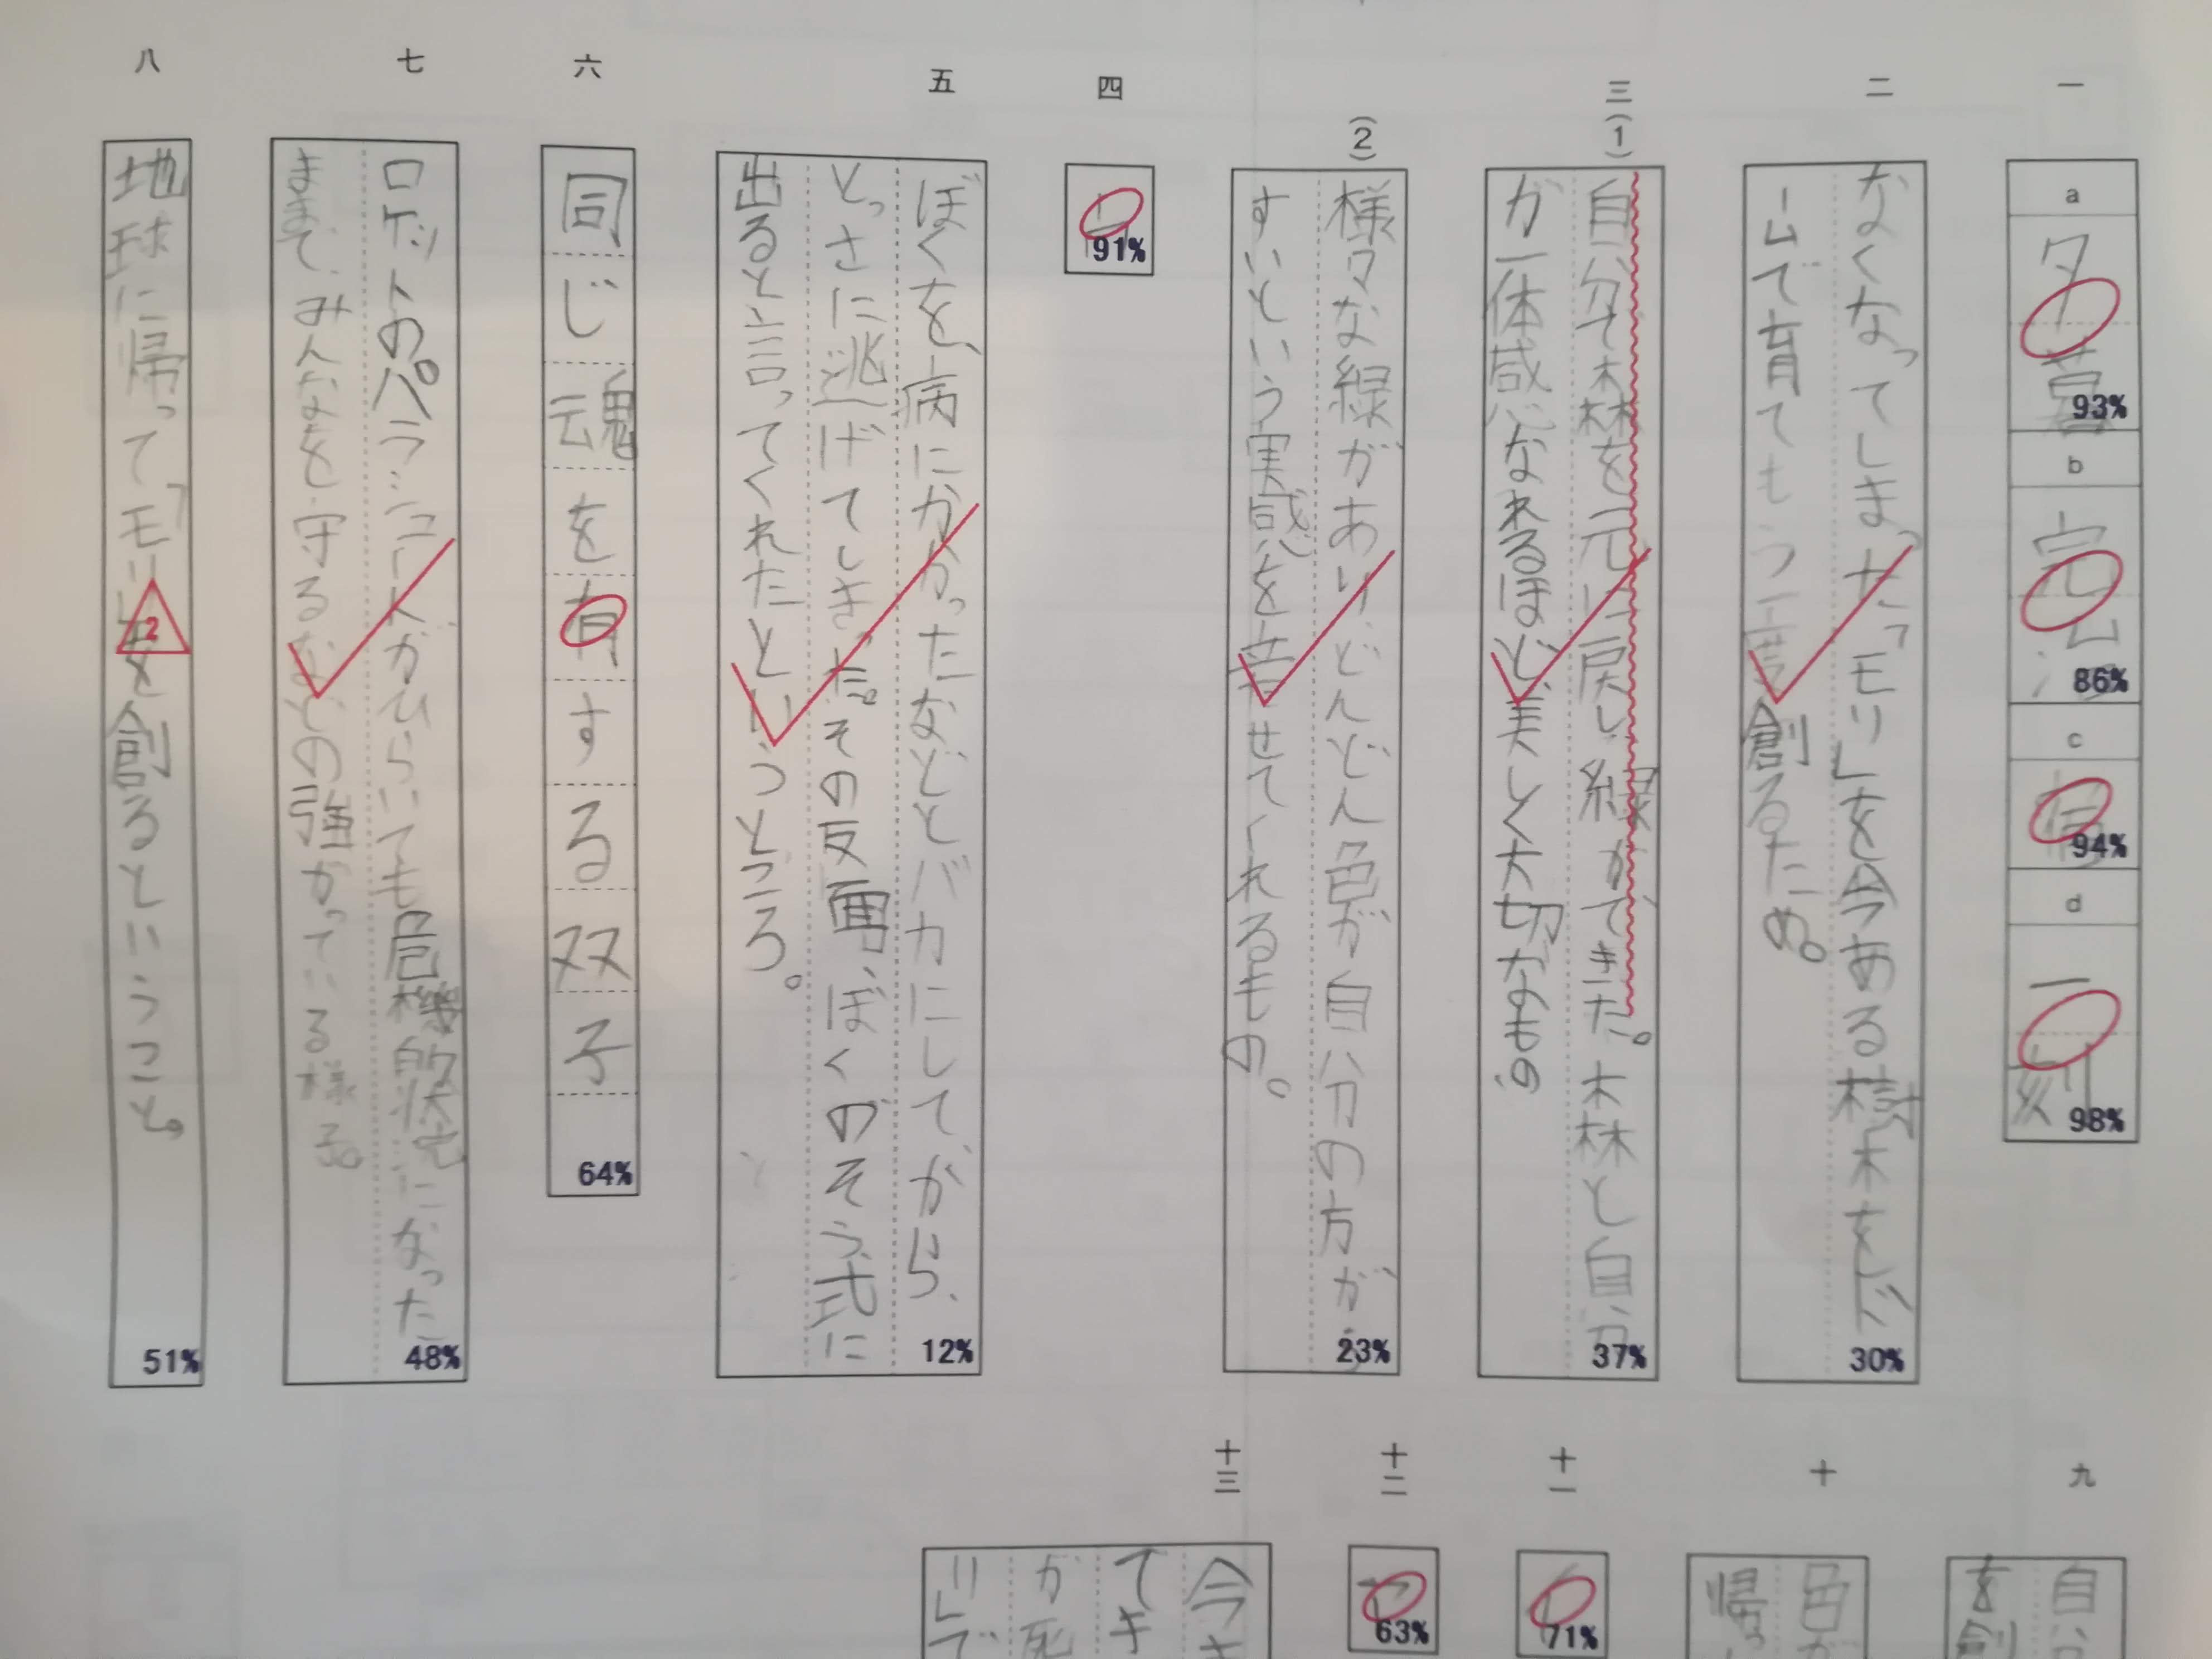 一
a
夕暮
93%
b
完
86%
c
94%
d
一
98%
二
なくなってしまった「モリ」を今ある樹木をド
ームで育てもう一度創るため。
30%
三(1)
自分で森を元に戻し緑ができた。森と自分
が一体感になれるほど、美しく大切なもの。
37%
(2)
様々な緑がありどんどん色が自分の方が
すいという実感を
せてくれるもの。
23%
四
91%
五
ぼくを、病にかかったなどとバカにしてから、
とっさに逃げてしまった。その反面、ぼくのそう式に
出ると言ってくれたというところ。
12%
六
同じ魂を有する双子
64%
七
ロケットのパラシュートがひらいても危機的状況になった
ままで、みんなを守るなどの強がっている様子。
48%
八
地球に帰って「モリ」を創るということ。
2
51%
九
自分
を創
十
色が
帰っ
十一
71%
十二
63%
十三
今
てき
が死
りして